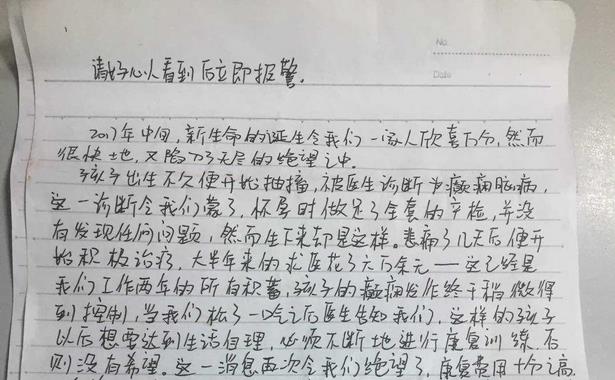 No.
Date
请好心人看到后立即报警.
2017年中间,新生命的诞生令我们一家人欣喜万分,然而
很快地,又陷了无尽的绝望之中.
孩子出生不久便开始抽搐,被医生诊断为癫痫脑病,
这一诊断令我们蒙了,怀孕时做足了全套的产检,并没
有发现任何问题,然而生下来却是这样.悲痛了几天后便开
始积极治疗,大半年来的求医花了六万余元——这已经是
我们工作两年的所有积蓄,孩子的癫痫发作终于稍微得
到控制,当我们松了一口气之后医生告知我们,这样的孩子
以后想要达到生活自理,必须不断地进行康复训练,否
则没有希望.这一消息再次令我们绝望了,康复费用十分之高